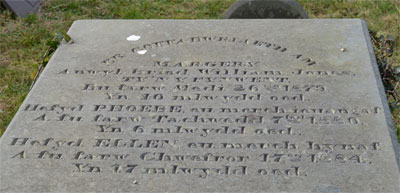 ER COFFADWRIAETH AM
MARGERY
Anwyl briod William Jones,
Bu farw Medi 26ain 1879.
Yn 46 mlwydd oed.
Hefyd PHOEBE, eu merch ieuengaf
A fu farw Tachwedd 7fed 1880
Yn 6 mlwydd oed.
Hefyd ELLEN, eu merch hynaf
A fu farw Chwefror 17eg 1884,
Yn 17 mlwydd oed.